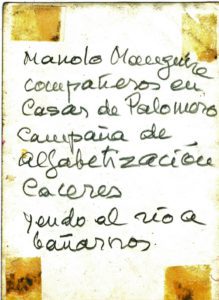 Manolo Manguire
compañeros en
Casas de Palomero
Campaña de
alfabetización
Caceres
yendo al río a
bañarnos.